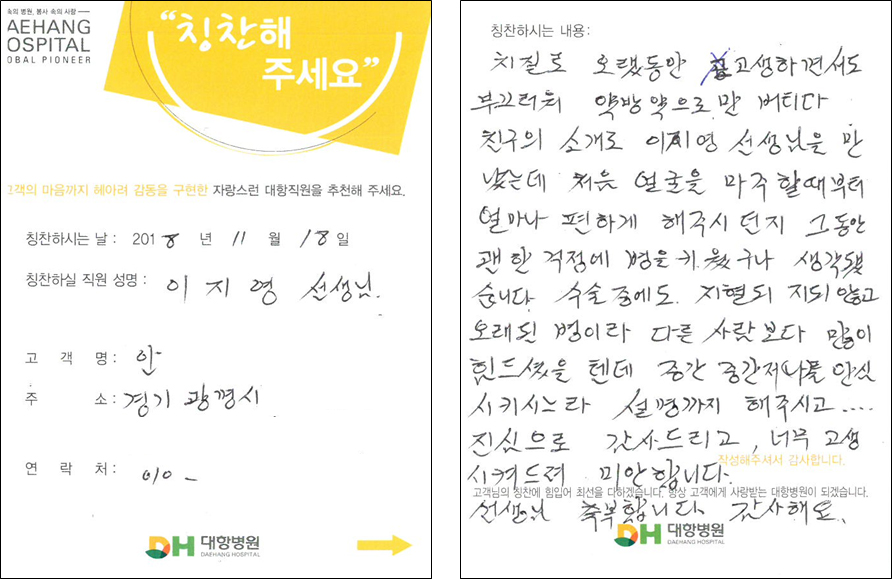 속의 병원, 봉사 속의 사람
AEHANG
OSPITAL
OBAL PIONEER
“칭찬해
주세요”
고객의 마음까지 헤아려 감동을 구현한 자랑스런 대항직원을 추천해 주세요.
칭찬하시는 날 : 2018 년 11 월 18 일
칭찬하실 직원 성명 : 이지영 선생님
고 객 명 : 안
주 소 : 경기 광명시
연 락 처 : 010 -
DH 대항병원
DAEHANG HOSPITAL
칭찬하시는 내용 :
치질로 오랬동안 고생하면서도
부끄러워 약방약으로만 버티다
친구의 소개로 이지영 선생님을 만
났는데 처음 얼굴을 마주 할때부터
얼마나 편하게 해주시던지 그동안
괜한 걱정에 병을 키웠구나 생각됬
습니다. 수술 중에도 지혈되 지되 않고
오래된 병이라 다른 사람보다 많이
힘드셨을 텐데 중간 중간 저를 안심
시키시느라 설명까지 해주시고....
진심으로 감사드리고, 너무 고생
작성해주셔서 감사합니다.
시켜드려 미안합니다.
고객님의 칭찬에 힘입어 최선을 다하겠습니다. 항상 고객에게 사랑받는 대항병원이 되겠습니다.
선생님 축복합니다 감사해요
DH 대항병원
DAEHANG HOSPITAL